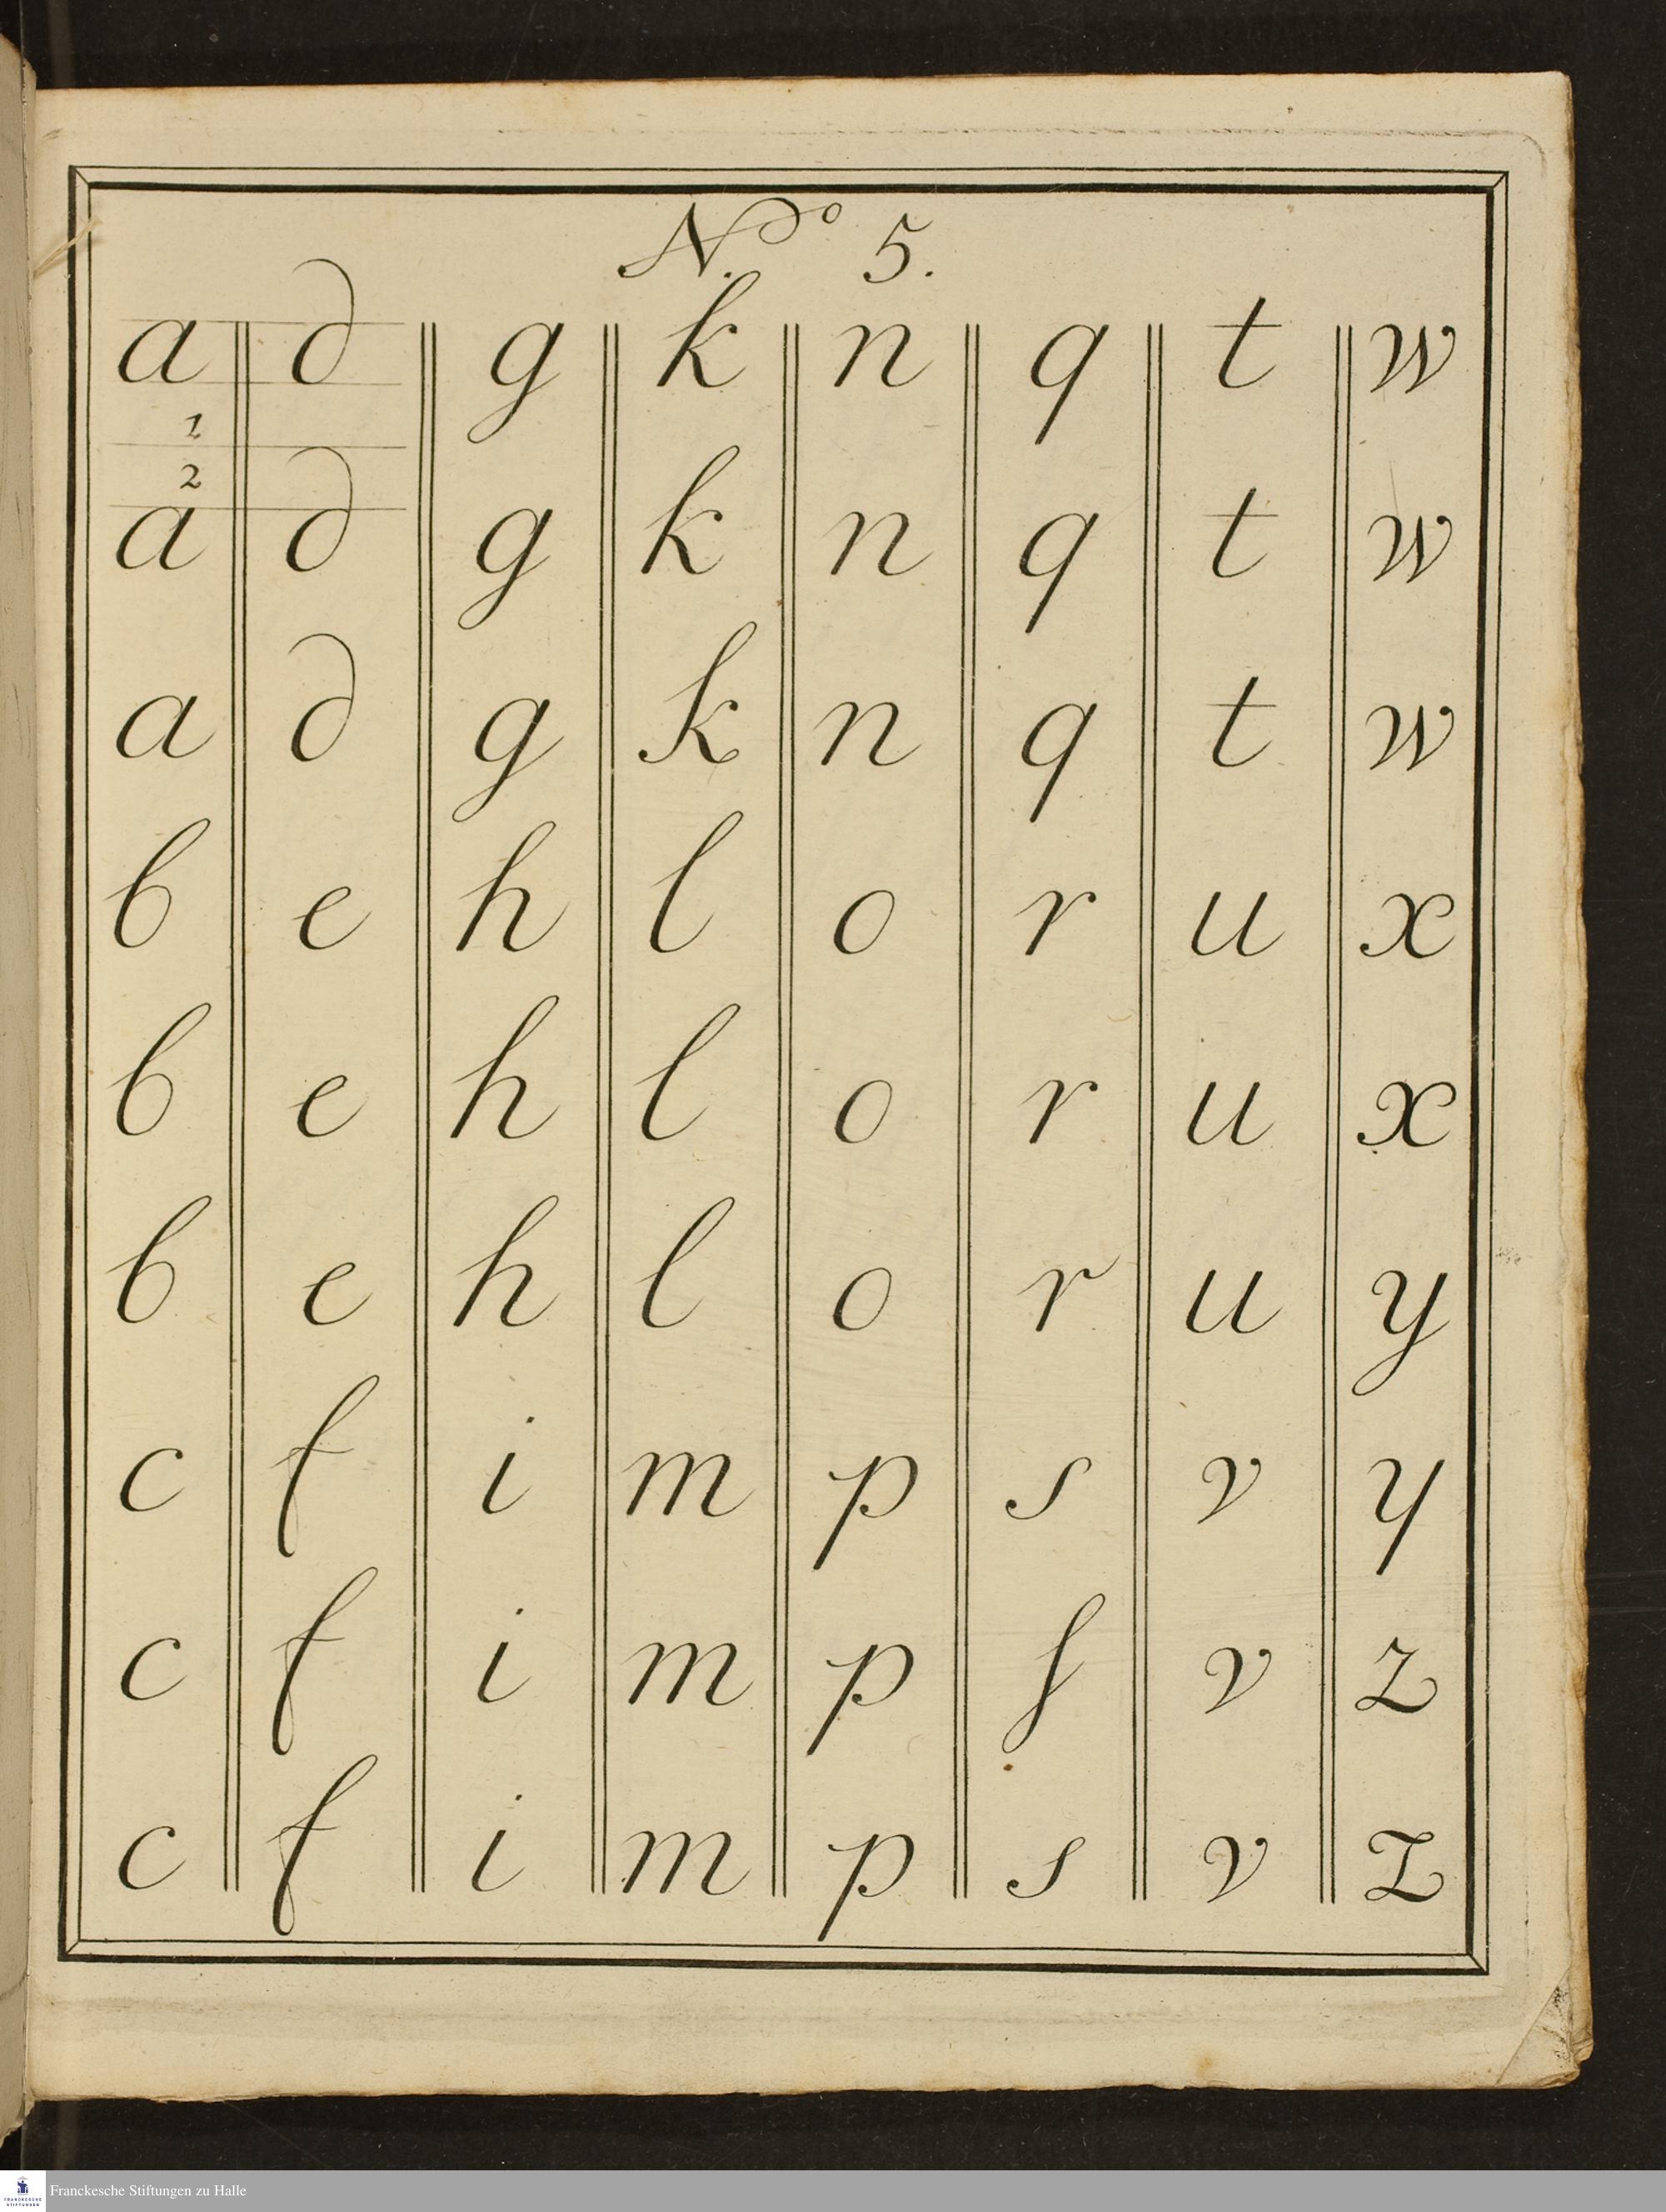 No. 5.
a d g k n q t w
1
2
a d g k n q t w
a d g k n q t w
b e h l o r u x
b e h l o r u x
b e h l o r u y
c f i m p s v y
c f i m p ſ v z
c f i m p s v z
FRANCKESCHE STIFTUNGEN
Franckesche Stiftungen zu Halle